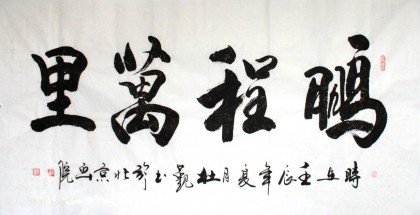 鵬程萬里
時在壬辰年夏月杜觀書於北京画院